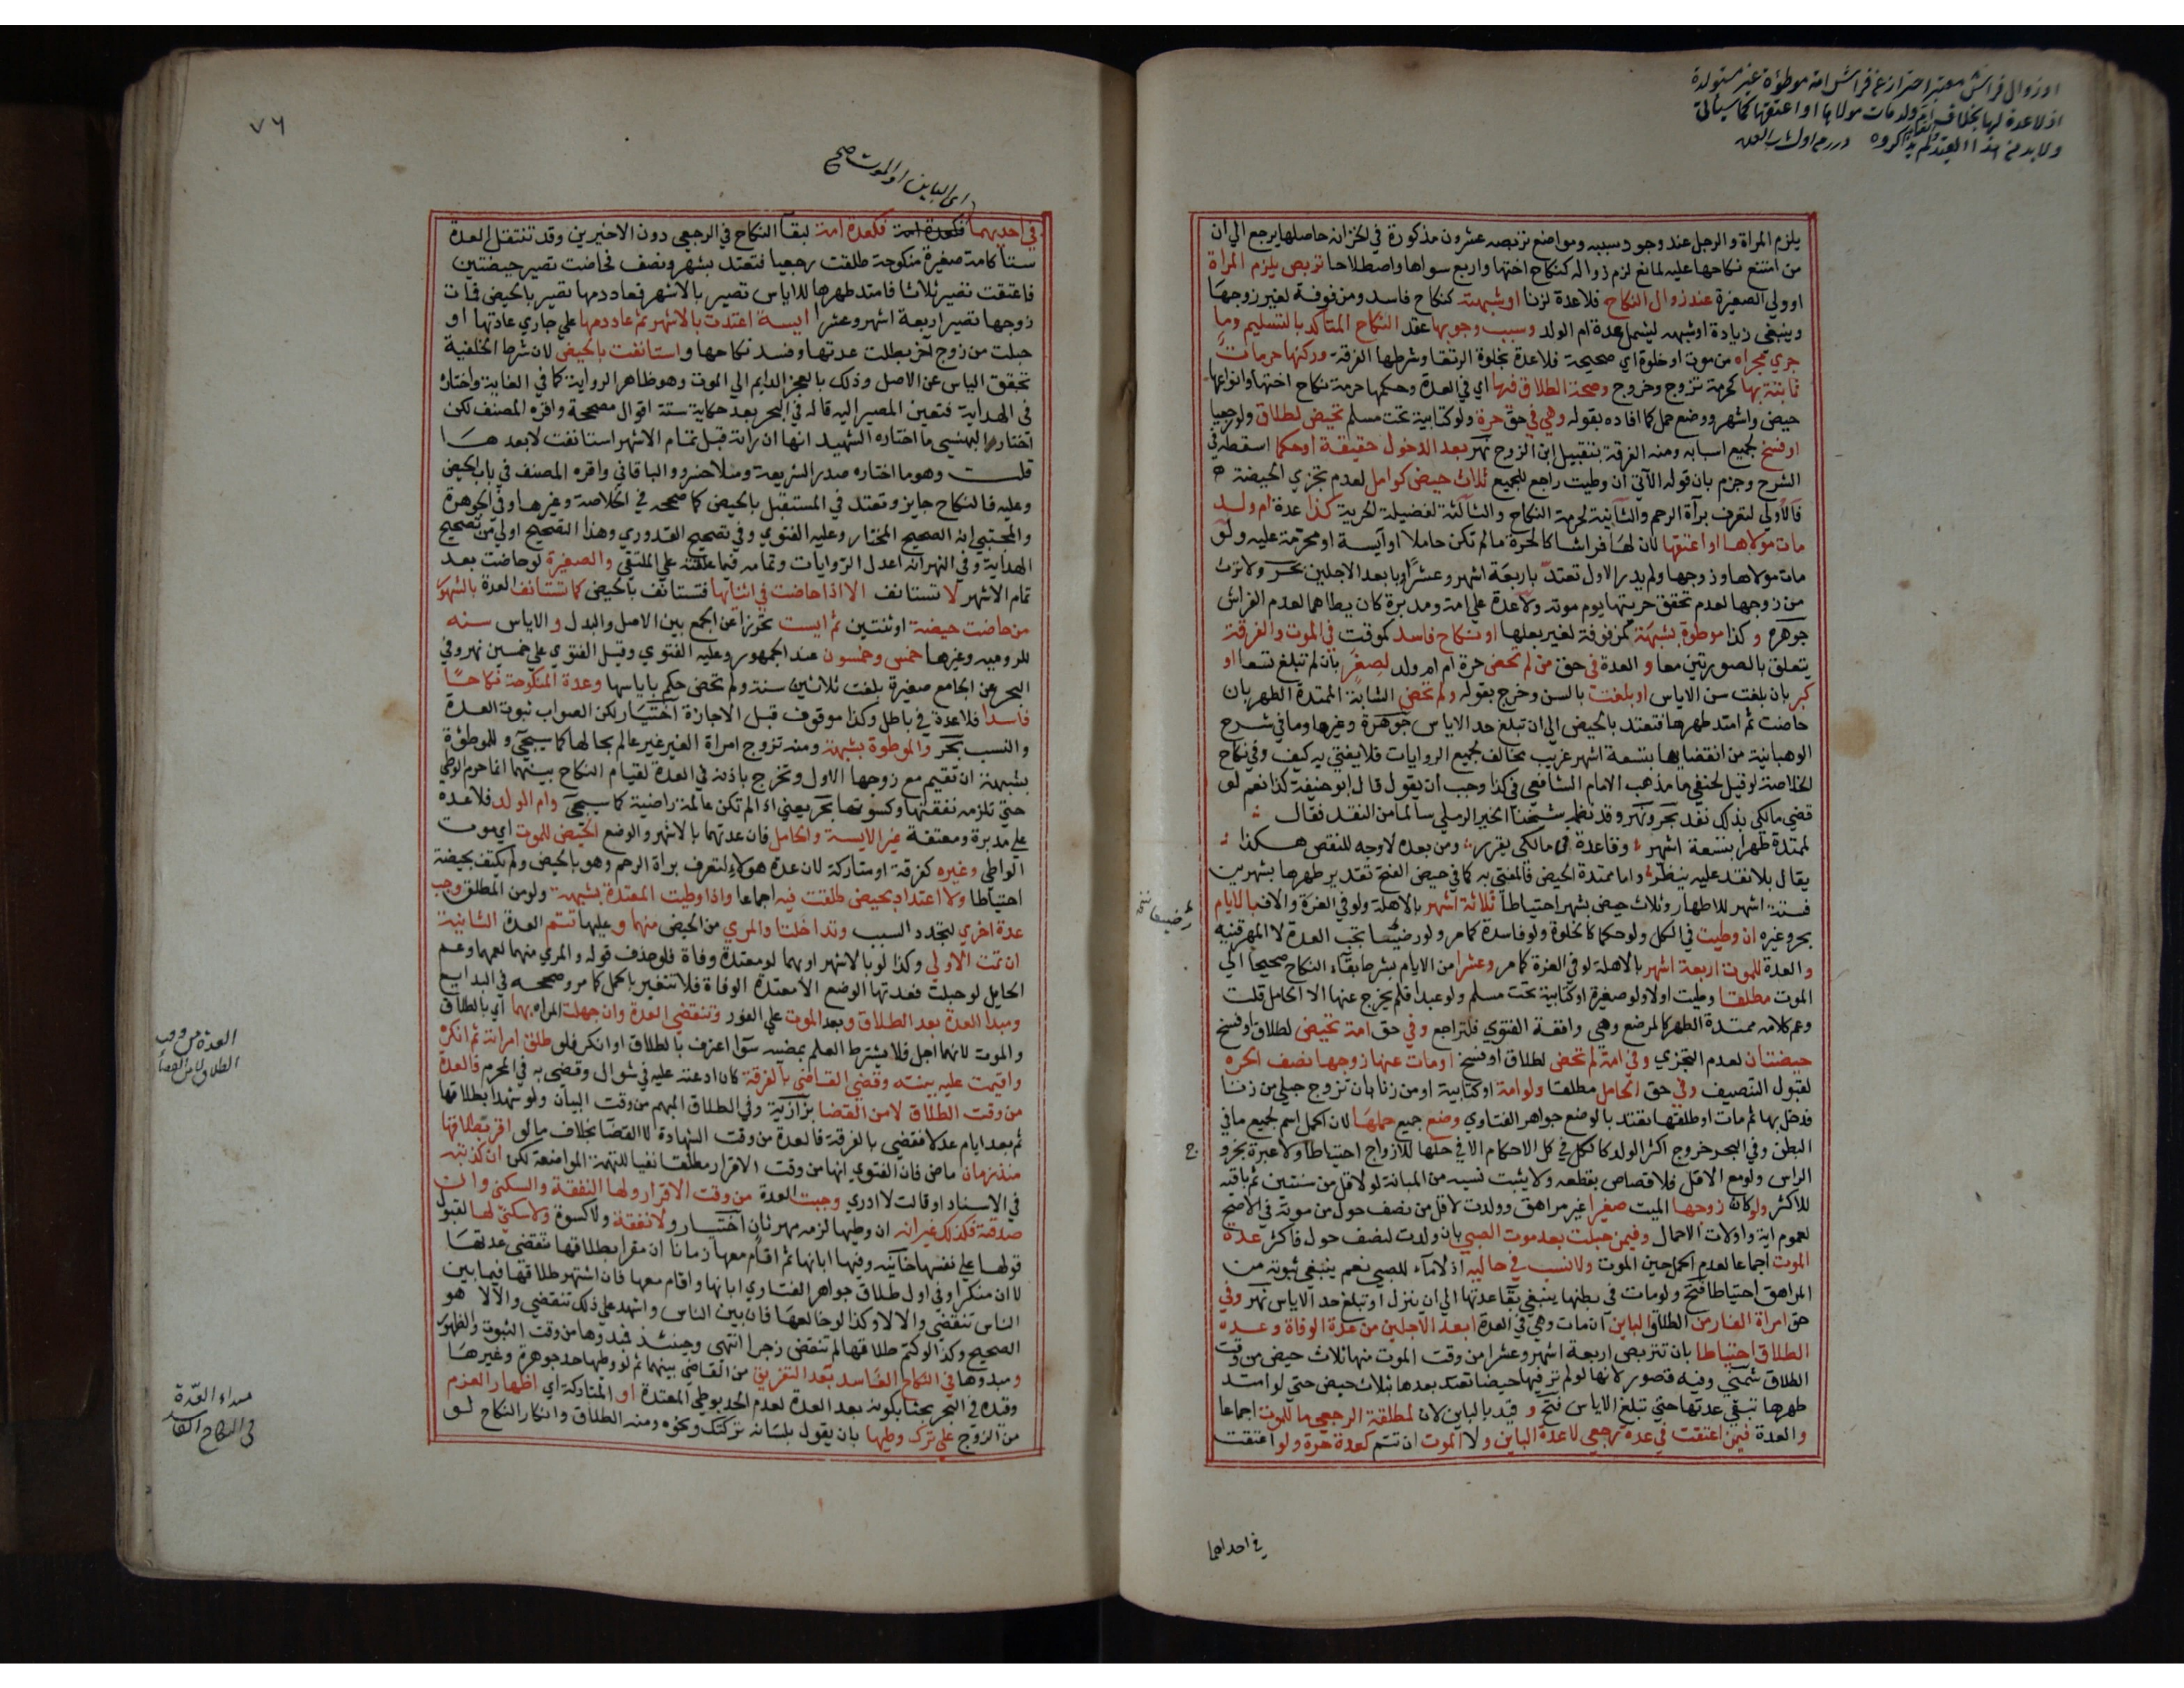 اوزوال فراش معتبر احتراز عن فراش امة موطوءة غير مستولدة
اذ لاعدة لها بخلاف ام ولد مات مولاها او اعتقها كما سياتي
ولا بد من هذا القيد ولم يذكروه درر من اول باب العدة
يلزم المراة والرجل عند وجود سببه ومواضع تربصه عشرون مذكورة في الخزانه حاصلها يرجع الي ان
من امتنع نكاحها عليه لمانع لزم زواله كنكاح اختها واربع سواها واصطلاحا تربص يلزم المراة
اوولي الصغيرة عند زوال النكاح فلاعدة لزنا او شبهته كنكاح فاسد ومزفوفة لغير زوجها
وينبغي زيادة اوشبهه ليشمل عدة ام الولد وسبب وجوبها عقد النكاح المتأكد بالتسليم وما
جري مجراه من موت اوخلوة اي صحيحة فلاعدة بخلوة الرتقا وشرطها الفرقة وركنها حرمات
ثابتة بها كحرمة تزوج وخروج وصحة الطلاق فيها اي في العدة وحكمها حرمة نكاح اختها وانواعها
حيض واشهر ووضع حمل كما افاده بقوله وهي في حق حرة ولوكتابية تحت مسلم تحيض لطلاق ولورجعيا
اوفسخ بجميع اسبابه ومنه الفرقة بتقبيل ابن الزوج نهر بعد الدخول حقيقة اوحكما اسقطه في
الشرح وجزم بان قوله الآتي ان وطيت راجع للجميع ثلاث حيض كوامل لعدم تجزي الحيضة
فالاولي لتعرف برآة الرحم والثانية لحرمة النكاح والثالثة لفضيلة الحرية كذا عدة ام ولد
مات مولاها او اعتقها لان لها فراشا كالحرة مالم تكن حاملا اوآيسة اومحرمة عليه ولو
مات مولاها وزوجها ولم يدر الاول تعتد باربعة اشهر وعشرا اوبابعد الاجلين بحر ولاترث
من زوجها لعدم تحقق حريتها يوم موته ولاعدة علي امة ومدبرة كان يطاهما لعدم الفراش
جوهرة وكذا موطوة بشبهة كمزفوفة لغير بعلها او نكاح فاسد كموقت في الموت والفرقة
يتعلق بالصورتين معا و العدة في حق من لم تحض حرة ام ام ولد لصغر بان لم تبلغ تسعا او
كبر بان بلغت سن الاياس اوبلغت بالسن وخرج بقوله ولم تحض الشابة الممتدة الطهر بان
حاضت ثم امتد طهرها فتعتد بالحيض الي ان تبلغ حد الاياس جوهرة وغيرها وما في شرح
الوهبانية من انقضايها بتسعة اشهر غريب مخالف لجميع الروايات فلايفتي به كيف وفي نكاح
الخلاصة لوقيل لحنفي ما مذهب الامام الشافعي في كذا وجب ان يقول قال ابوحنيفة كذا نعم لو
قضي مالكي بذلك نفذ بحر ونهر وقد نظمه شيخنا الخير الرملي سالما من النقد فقال
لممتدة طهرا بتسعة اشهر وفاعدة ان مالكي يقرر ومن بعده لاوجه للنقض هكذا
يقال بلانقد عليه ينظر واما ممتدة الحيض فالمفتي به كما في حيض الفتح تقدير طهرها بشهرين
فستة اشهر للاطهار وثلاث حيض بشهر احتياطا ثلاثة اشهر بالاهلة ولوفي الغرة والا فبالايام
بحر وغيره ان وطيت في الكل ولوحكما كالخلوة ولوفاسدة كمامر ولورضيعا تجب العدة لاالمهر قنيه
و العدة للموت اربعة اشهر بالاهلة لوفي الغرة كمامر وعشرا من الايام بشرط بقاء النكاح صحيحا الي
الموت مطلقا وطيت اولا ولوصغيرة اوكتابية تحت مسلم ولوعبدا فلم يخرج عنها الا الحامل قلت
وعم كلامه ممتدة الطهر كالمرضع وهي واقعة الفتوي فلتراجع وفي حق امة تحيض لطلاق اوفسخ
حيضتان لعدم التجزي وفي امة لم تحض لطلاق اوفسخ اومات عنها زوجها نصف الحره
لقبول التنصيف وفي حق الحامل مطلقا ولو امة اوكتابية اومن زنا بان تزوج حبلي من زنا
فدخل بها ثم مات اوطلقها تعتد بالوضع جواهر الفتاوي وضع جميع حملها لان الحمل اسم لجميع مافي
البطن وفي البحر خروج اكثر الولد كالكل في كل الاحكام الا في حلها للازواج احتياطا ولاعبرة بخروج
الراس ولومع الاقل فلاقصاص بقطعه ولايثبت نسبه من المبانة لولاقل من سنتين ثم باقيه
للاكثر ولوكان زوجها الميت صغيرا غير مراهق وولدت لاقل من نصف حول من موته في الاصح
لعموم اية واولات الاحمال وفيمن حبلت بعد موت الصبي بان ولدت لنصف حول فاكثر عدة
الموت اجماعا لعدم الحمل حين الموت ولانسب في حاليه اذ لاماء للصبي نعم ينبغي ثبوته من
المراهق احتياطا فتح ولومات في بطنها ينبغي بقاعدتها الي ان ينزل اوتبلغ حد الاياس نهر وفي
حق امراة الفار من الطلاق الباين ان مات وهي في العدة ابعد الاجلين من عدة الوفاة وعدة
الطلاق احتياطا بان تتربص اربعة اشهر وعشرا من وقت الموت منها ثلاث حيض من وقت
الطلاق شمني وفيه قصور لانها لولم تر فيها حيضا تعتد بعدها بثلاث حيض حتي لوامتد
طهرها تبقي عدتها حتي تبلغ الاياس فتح و قيد بالباين لان لمطلقة الرجعي ما للموت اجماعا
والعدة فيمن اعتقت في عدة رجعي لاعدة الباين ولا الموت ان تتم كعدة حرة ولو اعتقت
رضيعا نسخه
في احداهما
٧٦
اي الباين او الموت صح
في احديهما فكعدة امة فكعدة امة لبقآ النكاح في الرجعي دون الاخيرين وقد تنتقل العدة
ستا كامة صغيرة منكوحة طلقت رجعيا فتعتد بشهر ونصف فحاضت تصير حيضتين
فاعتقت تصير ثلاثا فامتد طهرها للاياس تصير بالاشهر فعاد دمها تصير بالحيض فمات
زوجها تصير اربعة اشهر وعشرا ايسة اعتدت بالاشهر ثم عاد دمها علي جاري عادتها او
حبلت من زوج آخر بطلت عدتها وفسد نكاحها واستانفت بالحيض لان شرط الخلفية
تحقق الياس عن الاصل وذلك بالعجز الدايم الي الموت وهو ظاهر الرواية كما في الغاية واختاره
في الهداية فتعين المصير اليه قاله في البحر بعد حكاية ستة اقوال مصححة واقره المصنف لكن
اختار البهنسي ما اختاره الشهيد انها ان راته قبل تمام الاشهر استانفت لابعدها
قلت وهوما اختاره صدر الشريعة ومنلاخسرو والباقاني واقره المصنف في باب الحيض
وعليه فالنكاح جايز وتعتد في المستقبل بالحيض كما صححه في الخلاصة وغيرها وفي الجوهرة
والمجتبي انه الصحيح المختار وعليه الفتوي وفي تصحيح القدوري وهذا التصحيح اولي من تصحيح
الهداية وفي النهر انه اعدل الروايات وتمامه فيما علقته علي الملتقي والصغيرة لوحاضت بعد
تمام الاشهر لا تستانف الا اذا حاضت في اثنائها فتستانف بالحيض كما تستانف العدة بالشهور
من حاضت حيضة اوثنتين ثم ايست تحرزا عن الجمع بين الاصل والبدل و الاياس سنه
للروميه وغيرها خمس وخمسون عند الجمهور وعليه الفتوي وقيل الفتوي علي خمسين نهر وفي
البحر عن الجامع صغيرة بلغت ثلاثين سنة ولم تحض حكم باياسها وعدة المنكوحة نكاحا
فاسدا فلاعدة في باطل وكذا موقوف قبل الاجازة اختيار لكن الصواب ثبوت العدة
والنسب بحر والموطوة بشبهة ومنه تزوج امراة الغير غير عالم بحالها كما سيجئ و للموطوءة
بشبهة ان تقيم مع زوجها الاول وتخرج باذنه في العدة لقيام النكاح بينهما انما حرم الوطي
حتي تلزمه نفقتها وكسوتها بحر يعني اذا لم تكن عالمة راضية كما سيجئ وام الولد فلاعدة
علي مدبرة ومعتقة غير الايسة والحامل فان عدتهما بالاشهر والوضع الحيض للموت اي موت
الواطي وغيره كفرقة اومتاركة لان عدة هولاء لتعرف براة الرحم وهو بالحيض ولم يكتف بحيضة
احتياطا ولا اعتداد بحيض طلقت فيه اجماعا واذا وطيت المعتدة بشبهة ولومن المطلق وجب
عدة اخري لتجدد السبب وتداخلتا والمري من الحيض منهما و عليها تتم العدة الثانية
ان تمت الاولي وكذا لوبالاشهر اوبهما لومعتدة وفاة فلوحذف قوله والمري منهما لعمهما وعم
الحايل لوحبلت فعدتها الوضع الا معتدة الوفاة فلاتتغير بالحمل كمامر وصححه في البدايع
ومبدا العدة بعد الطلاق وبعد الموت علي الفور وتنقضي العدة وان جهلت المراه بهما اي بالطلاق
والموت لانهما اجل فلايشترط العلم بمضيه سوآ اعترف بالطلاق اوانكر فلو طلق امراته ثم انكره
واقيمت عليه بينة وقضي القاضي بالفرقة كان ادعته عليه في شوال وقضي به في المحرم فالعدة
من وقت الطلاق لامن القضا بزازية وفي الطلاق المبهم من وقت البيان ولوشهدا بطلاقها
ثم بعد ايام عدلا فقضي بالفرقة فالعدة من وقت الشهادة لا القضا بخلاف مالو اقر بطلاقها
منذ زمان ماض فان الفتوي انها من وقت الاقرار مطلقا نفيا لتهمة المواضعة لكن ان كذبته
في الاسناد اوقالت لاادري وجبت العدة من وقت الاقرار ولها النفقة والسكني وان
صدقته فكذلك غير انه ان وطيها لزمه مهر ثان اختيار و لا نفقة ولاكسوة ولاسكني لها لقبول
قولها علي نفسها خانيه وفيها ابانها ثم اقام معها زمانا ان مقرا بطلاقها تنقضي عدتها
لا ان منكرا وفي اول طلاق جواهر الفتاوي ابانها واقام معها فان اشتهر طلاقها فيما بين
الناس تنقضي والا لا وكذا لوخالعها فان بين الناس واشهد علي ذلك تنقضي والا لا هو
الصحيح وكذا لوكتم طلاقها لم تنقض زجرا انتهي وحينئذ فبدوها من وقت الثبوت والظهور
ومبدوها في النكاح الفاسد بعد التفريق من القاضي بينهما ثم لو وطيها حد جوهرة وغيرها
وقيده في البحر بحثا بكونه بعد العدة لعدم الحد بوطي المعتدة او المتاركة اي اظهار العزم
من الزوج علي ترك وطيها بان يقول بلسانه تركتك ونحوه ومنه الطلاق وانكار النكاح لو
العدة من وقت
الطلاق لا من القضا
مبداء العدة
في النكاح الفاسد